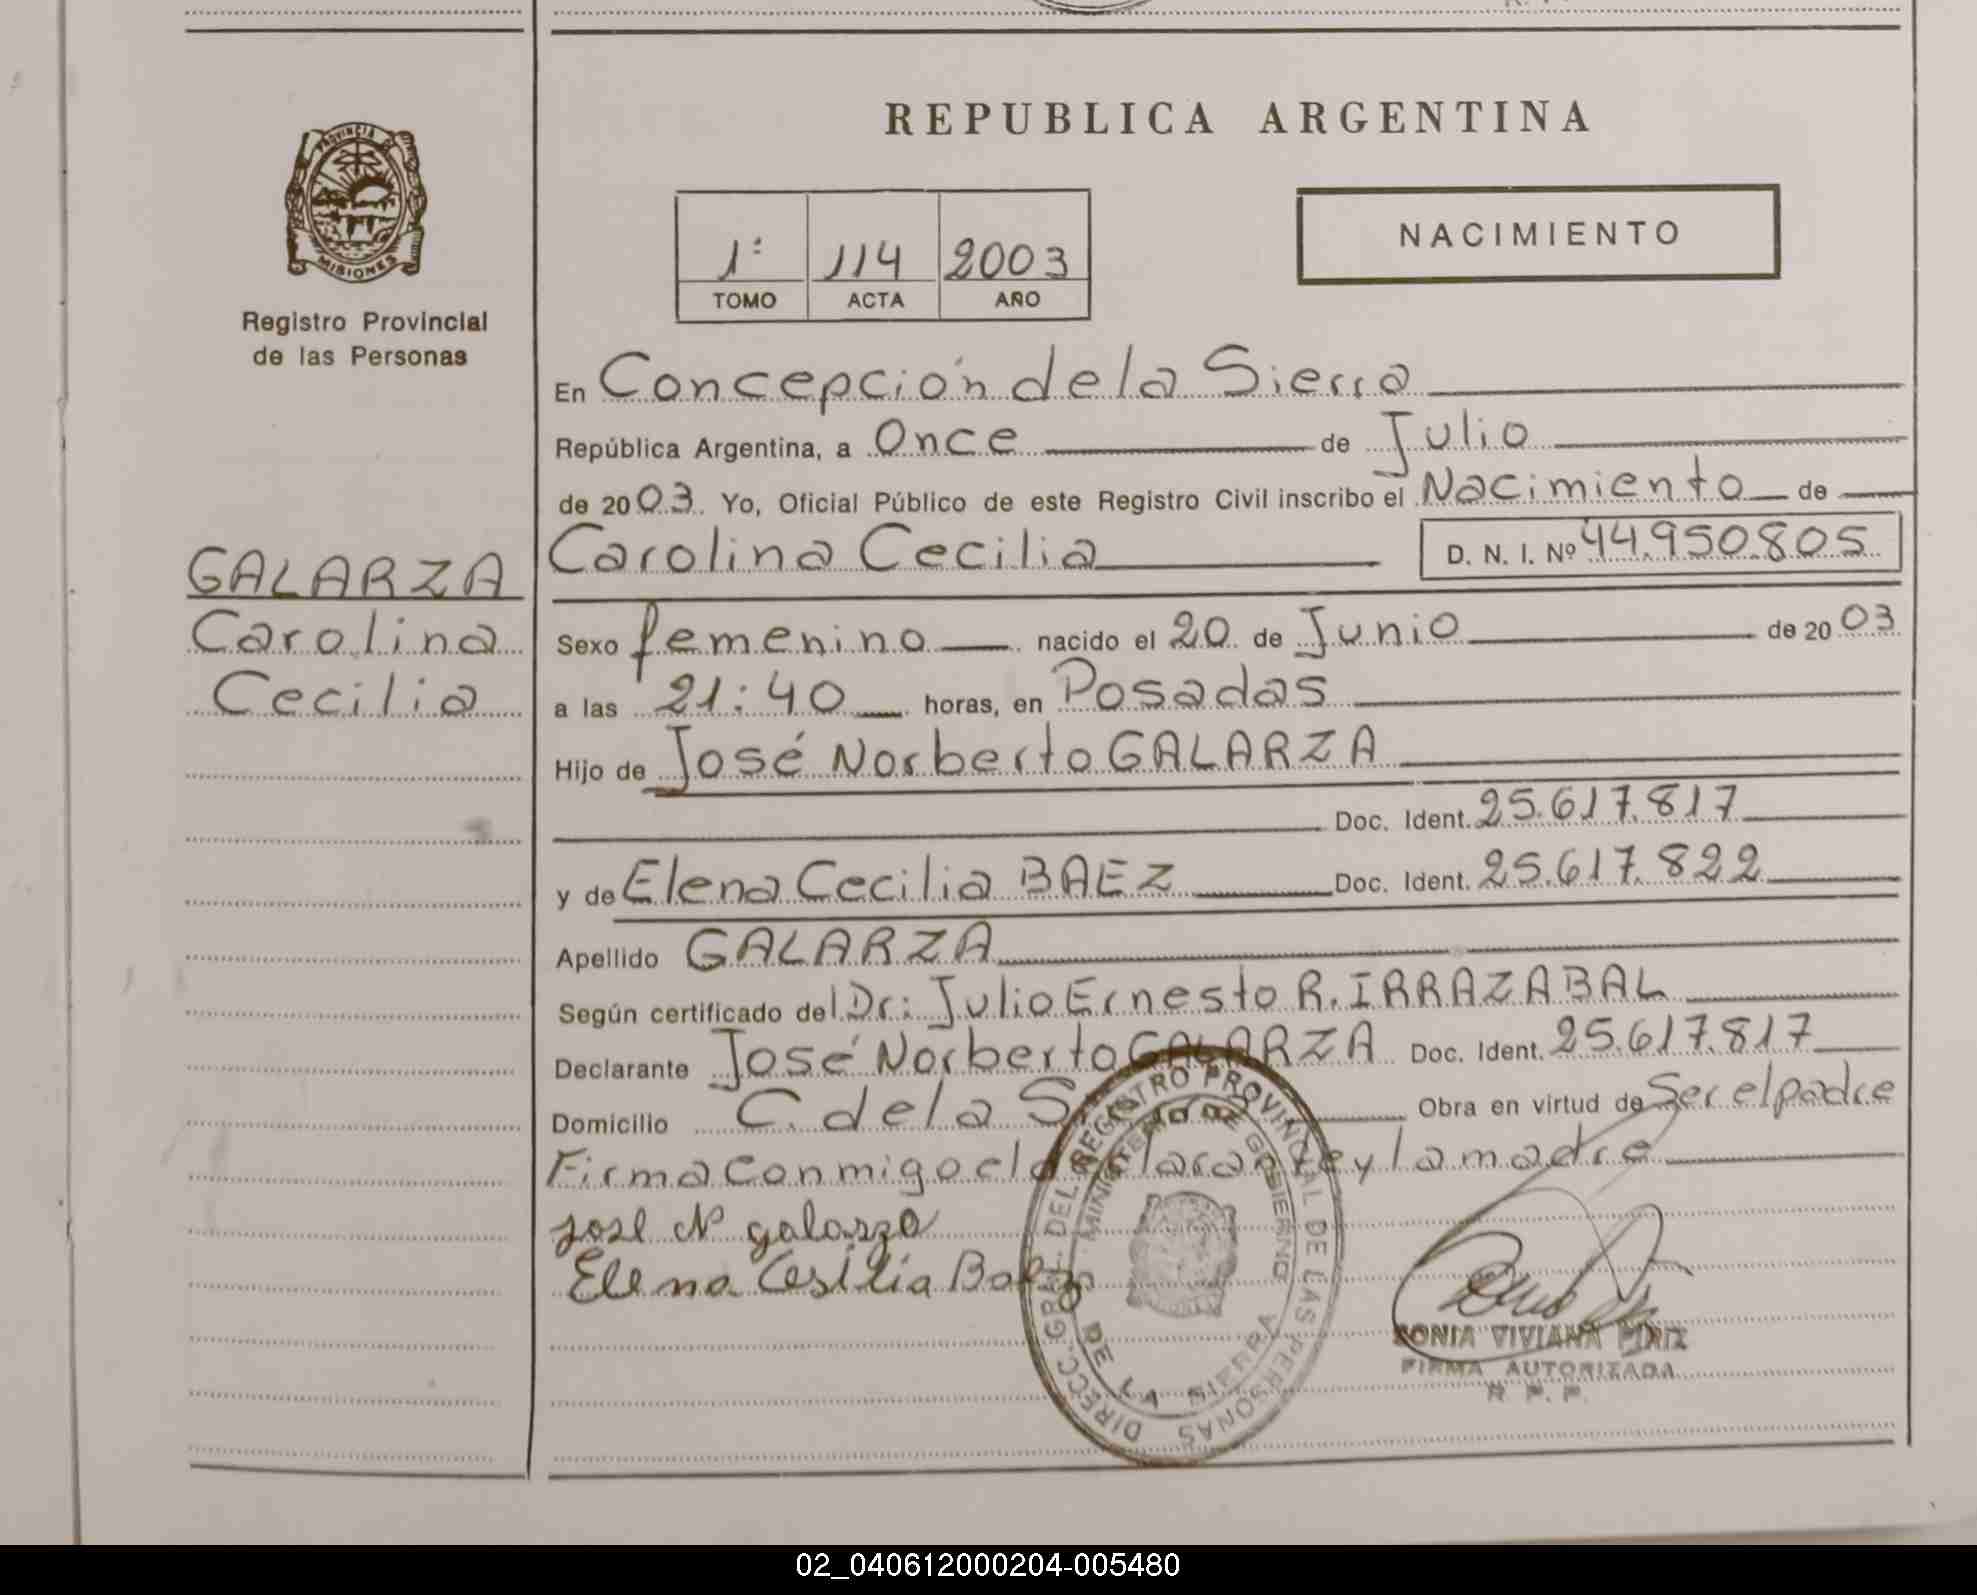 REPUBLICA ARGENTINA
PROVINCIA DE
MISIONES
Registro Provincial
de las Personas
1º 114 2003
TOMO ACTA AÑO
NACIMIENTO
En Concepción de la Sierra
República Argentina, a Once de Julio
de 2003 Yo, Oficial Público de este Registro Civil inscribo el Nacimiento de
GALARZA
Carolina
Cecilia
Carolina Cecilia D. N. I. Nº 44.950.805
Sexo femenino nacido el 20 de Junio de 2003
a las 21:40 horas, en Posadas
Hijo de José Norberto GALARZA
Doc. Ident. 25.617.817
y de Elena Cecilia BAEZ Doc. Ident. 25.617.822
Apellido GALARZA
Según certificado del Dr: Julio Ernesto R. IRRAZABAL
Declarante José Norberto GALARZA Doc. Ident. 25.617.817
Domicilio C. de la S Obra en virtud de Ser el padre
Firma conmigo el declarante y la madre
José N galarza
Elena Cesilia Baez
DIRECC. GRAL. DEL REGISTRO PROVINCIAL DE LAS PERSONAS
MINISTERIO DE GOBIERNO
DE LA SIERRA
SONIA VIVIANA
FIRMA AUTORIZADA
R. P. P.
02_040612000204-005480